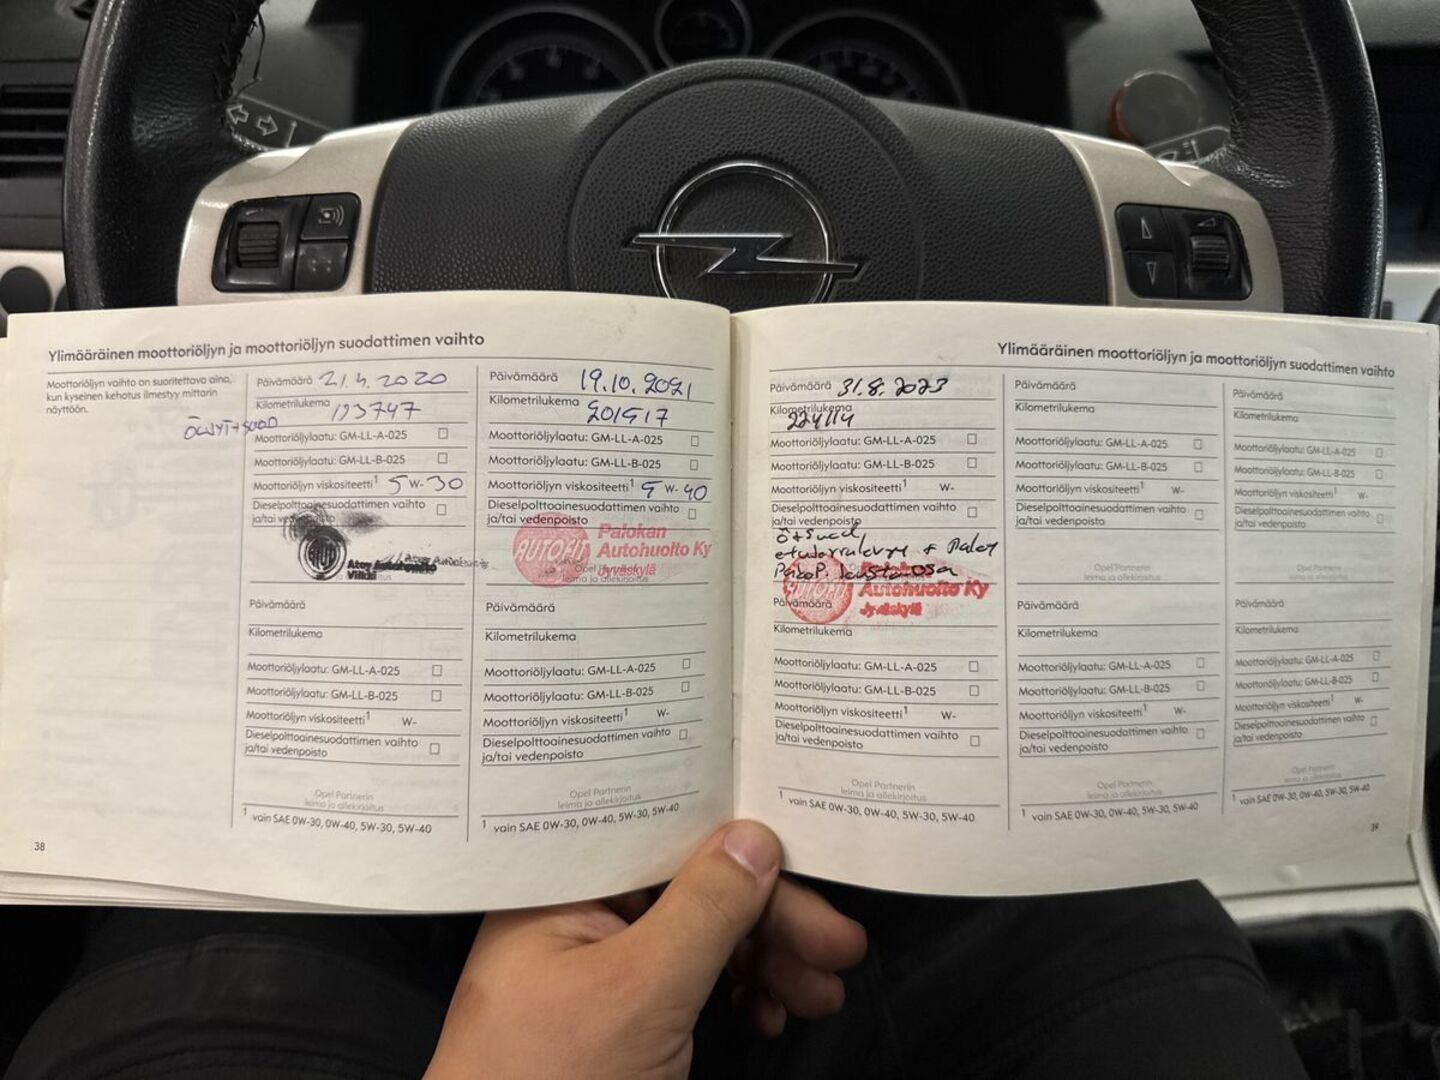 Ylimääräinen moottoriöljyn ja moottoriöljyn suodattimen vaihto
Moottoriöljyn vaihto on suoritettava aina,
kun kyseinen kehotus ilmestyy mittarin
näyttöön.
Päivämäärä 21.4.2020
Kilometrilukema 193747
Moottoriöljylaatu: GM-LL-A-025
Moottoriöljylaatu: GM-LL-B-025
Moottoriöljyn viskositeetti¹ 5 W-30
Dieselpolttoainesuodattimen vaihto
ja/tai vedenpoisto
Päivämäärä
Kilometrilukema
Moottoriöljylaatu: GM-LL-A-025
Moottoriöljylaatu: GM-LL-B-025
Moottoriöljyn viskositeetti¹ W-
Dieselpolttoainesuodattimen vaihto
ja/tai vedenpoisto
Opel Partnerin
leima ja allekirjoitus
¹ vain SAE 0W-30, 0W-40, 5W-30, 5W-40
38
Päivämäärä 19.10.2021
Kilometrilukema 201917
Moottoriöljylaatu: GM-LL-A-025
Moottoriöljylaatu: GM-LL-B-025
Moottoriöljyn viskositeetti¹ 5 W-40
Dieselpolttoainesuodattimen vaihto
ja/tai vedenpoisto
AUTOFIT
Palokan
Autohuolto Ky
Jyväskylä
Opel Partnerin
leima ja allekirjoitus
Päivämäärä
Kilometrilukema
Moottoriöljylaatu: GM-LL-A-025
Moottoriöljylaatu: GM-LL-B-025
Moottoriöljyn viskositeetti¹ W-
Dieselpolttoainesuodattimen vaihto
ja/tai vedenpoisto
Opel Partnerin
leima ja allekirjoitus
¹ vain SAE 0W-30, 0W-40, 5W-30, 5W-40
Ylimääräinen moottoriöljyn ja moottoriöljyn suodattimen vaihto
Päivämäärä 31.8.2023
Kilometrilukema
224114
Moottoriöljylaatu: GM-LL-A-025
Moottoriöljylaatu: GM-LL-B-025
Moottoriöljyn viskositeetti¹ W-
Dieselpolttoainesuodattimen vaihto
ja/tai vedenpoisto
AUTOFIT
Autohuolto Ky
Jyväskylä
Päivämäärä
Kilometrilukema
Moottoriöljylaatu: GM-LL-A-025
Moottoriöljylaatu: GM-LL-B-025
Moottoriöljyn viskositeetti¹ W-
Dieselpolttoainesuodattimen vaihto
ja/tai vedenpoisto
Opel Partnerin
leima ja allekirjoitus
¹ vain SAE 0W-30, 0W-40, 5W-30, 5W-40
Päivämäärä
Kilometrilukema
Moottoriöljylaatu: GM-LL-A-025
Moottoriöljylaatu: GM-LL-B-025
Moottoriöljyn viskositeetti¹ W-
Dieselpolttoainesuodattimen vaihto
ja/tai vedenpoisto
Opel Partnerin
leima ja allekirjoitus
Päivämäärä
Kilometrilukema
Moottoriöljylaatu: GM-LL-A-025
Moottoriöljylaatu: GM-LL-B-025
Moottoriöljyn viskositeetti¹ W-
Dieselpolttoainesuodattimen vaihto
ja/tai vedenpoisto
Opel Partnerin
leima ja allekirjoitus
¹ vain SAE 0W-30, 0W-40, 5W-30, 5W-40
Päivämäärä
Kilometrilukema
Moottoriöljylaatu: GM-LL-A-025
Moottoriöljylaatu: GM-LL-B-025
Moottoriöljyn viskositeetti¹ W-
Dieselpolttoainesuodattimen vaihto
ja/tai vedenpoisto
Opel Partnerin
leima ja allekirjoitus
Päivämäärä
Kilometrilukema
Moottoriöljylaatu: GM-LL-A-025
Moottoriöljylaatu: GM-LL-B-025
Moottoriöljyn viskositeetti¹ W-
Dieselpolttoainesuodattimen vaihto
ja/tai vedenpoisto
Opel Partnerin
leima ja allekirjoitus
¹ vain SAE 0W-30, 0W-40, 5W-30, 5W-40
39